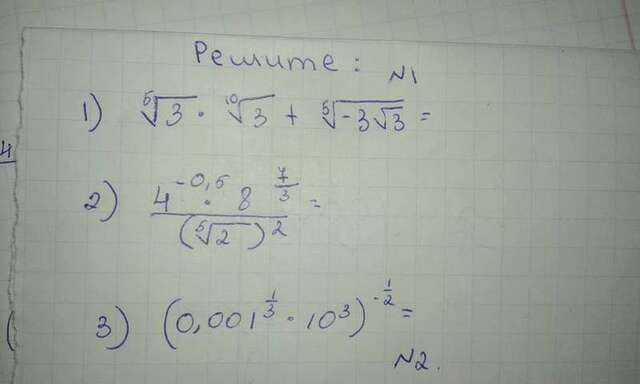 4
Решите: N1
1) ⁵√3 · ¹⁰√3 + ⁵√(-3√3) =
2) (4^(-0,5) · 8^(7/3)) / (⁵√2)² =
3) (0,001^(1/3) · 10³)^(-1/2) =
N2.